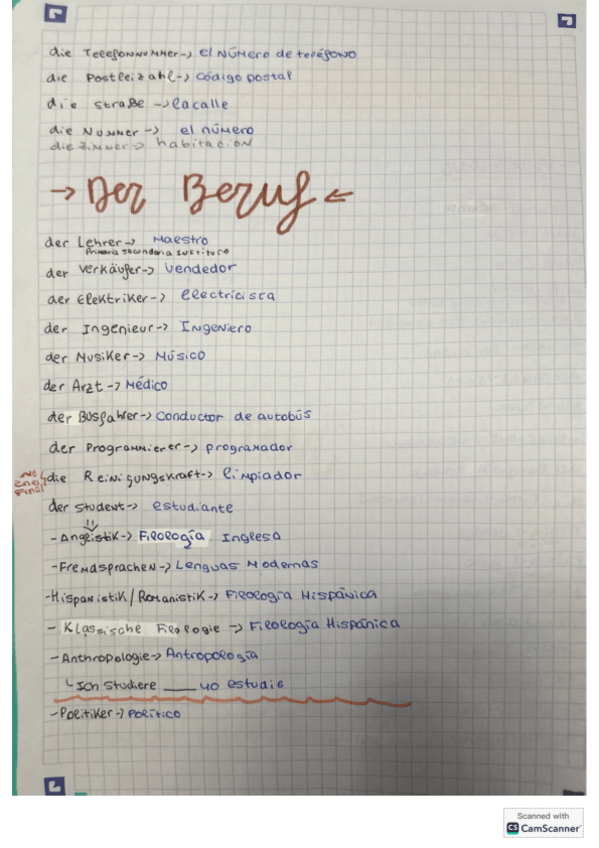 die Telefonnummer→ el número de teléfono
die Postleizahl→ código postal
die straße → la calle
die Nummer → el número
die Zimmer→ habitación
→ Der Beruf ←
der Lehrer→ Maestro
Primaria secundaria
der Verkäufer→ vendedor
der Elektriker→ electricista
der Ingenieur→ Ingeniero
der Musiker→ Músico
der Arzt→ Médico
der Busfahrer→ conductor de autobús
der Programmierer→ programador
die Reinigungskraft→ limpiador
der student→ estudiante
- Anglistik→ Filología Inglesa
- Fremdsprachen→ Lenguas Modernas
- Hispanistik/Romanistik→ Filología Hispánica
- Klassische Filologie → Filología Hispánica
- Anthropologie→ Antropología
Ich studiere ____ yo estudie
- Politiker→ Político
Scanned with
CS CamScanner